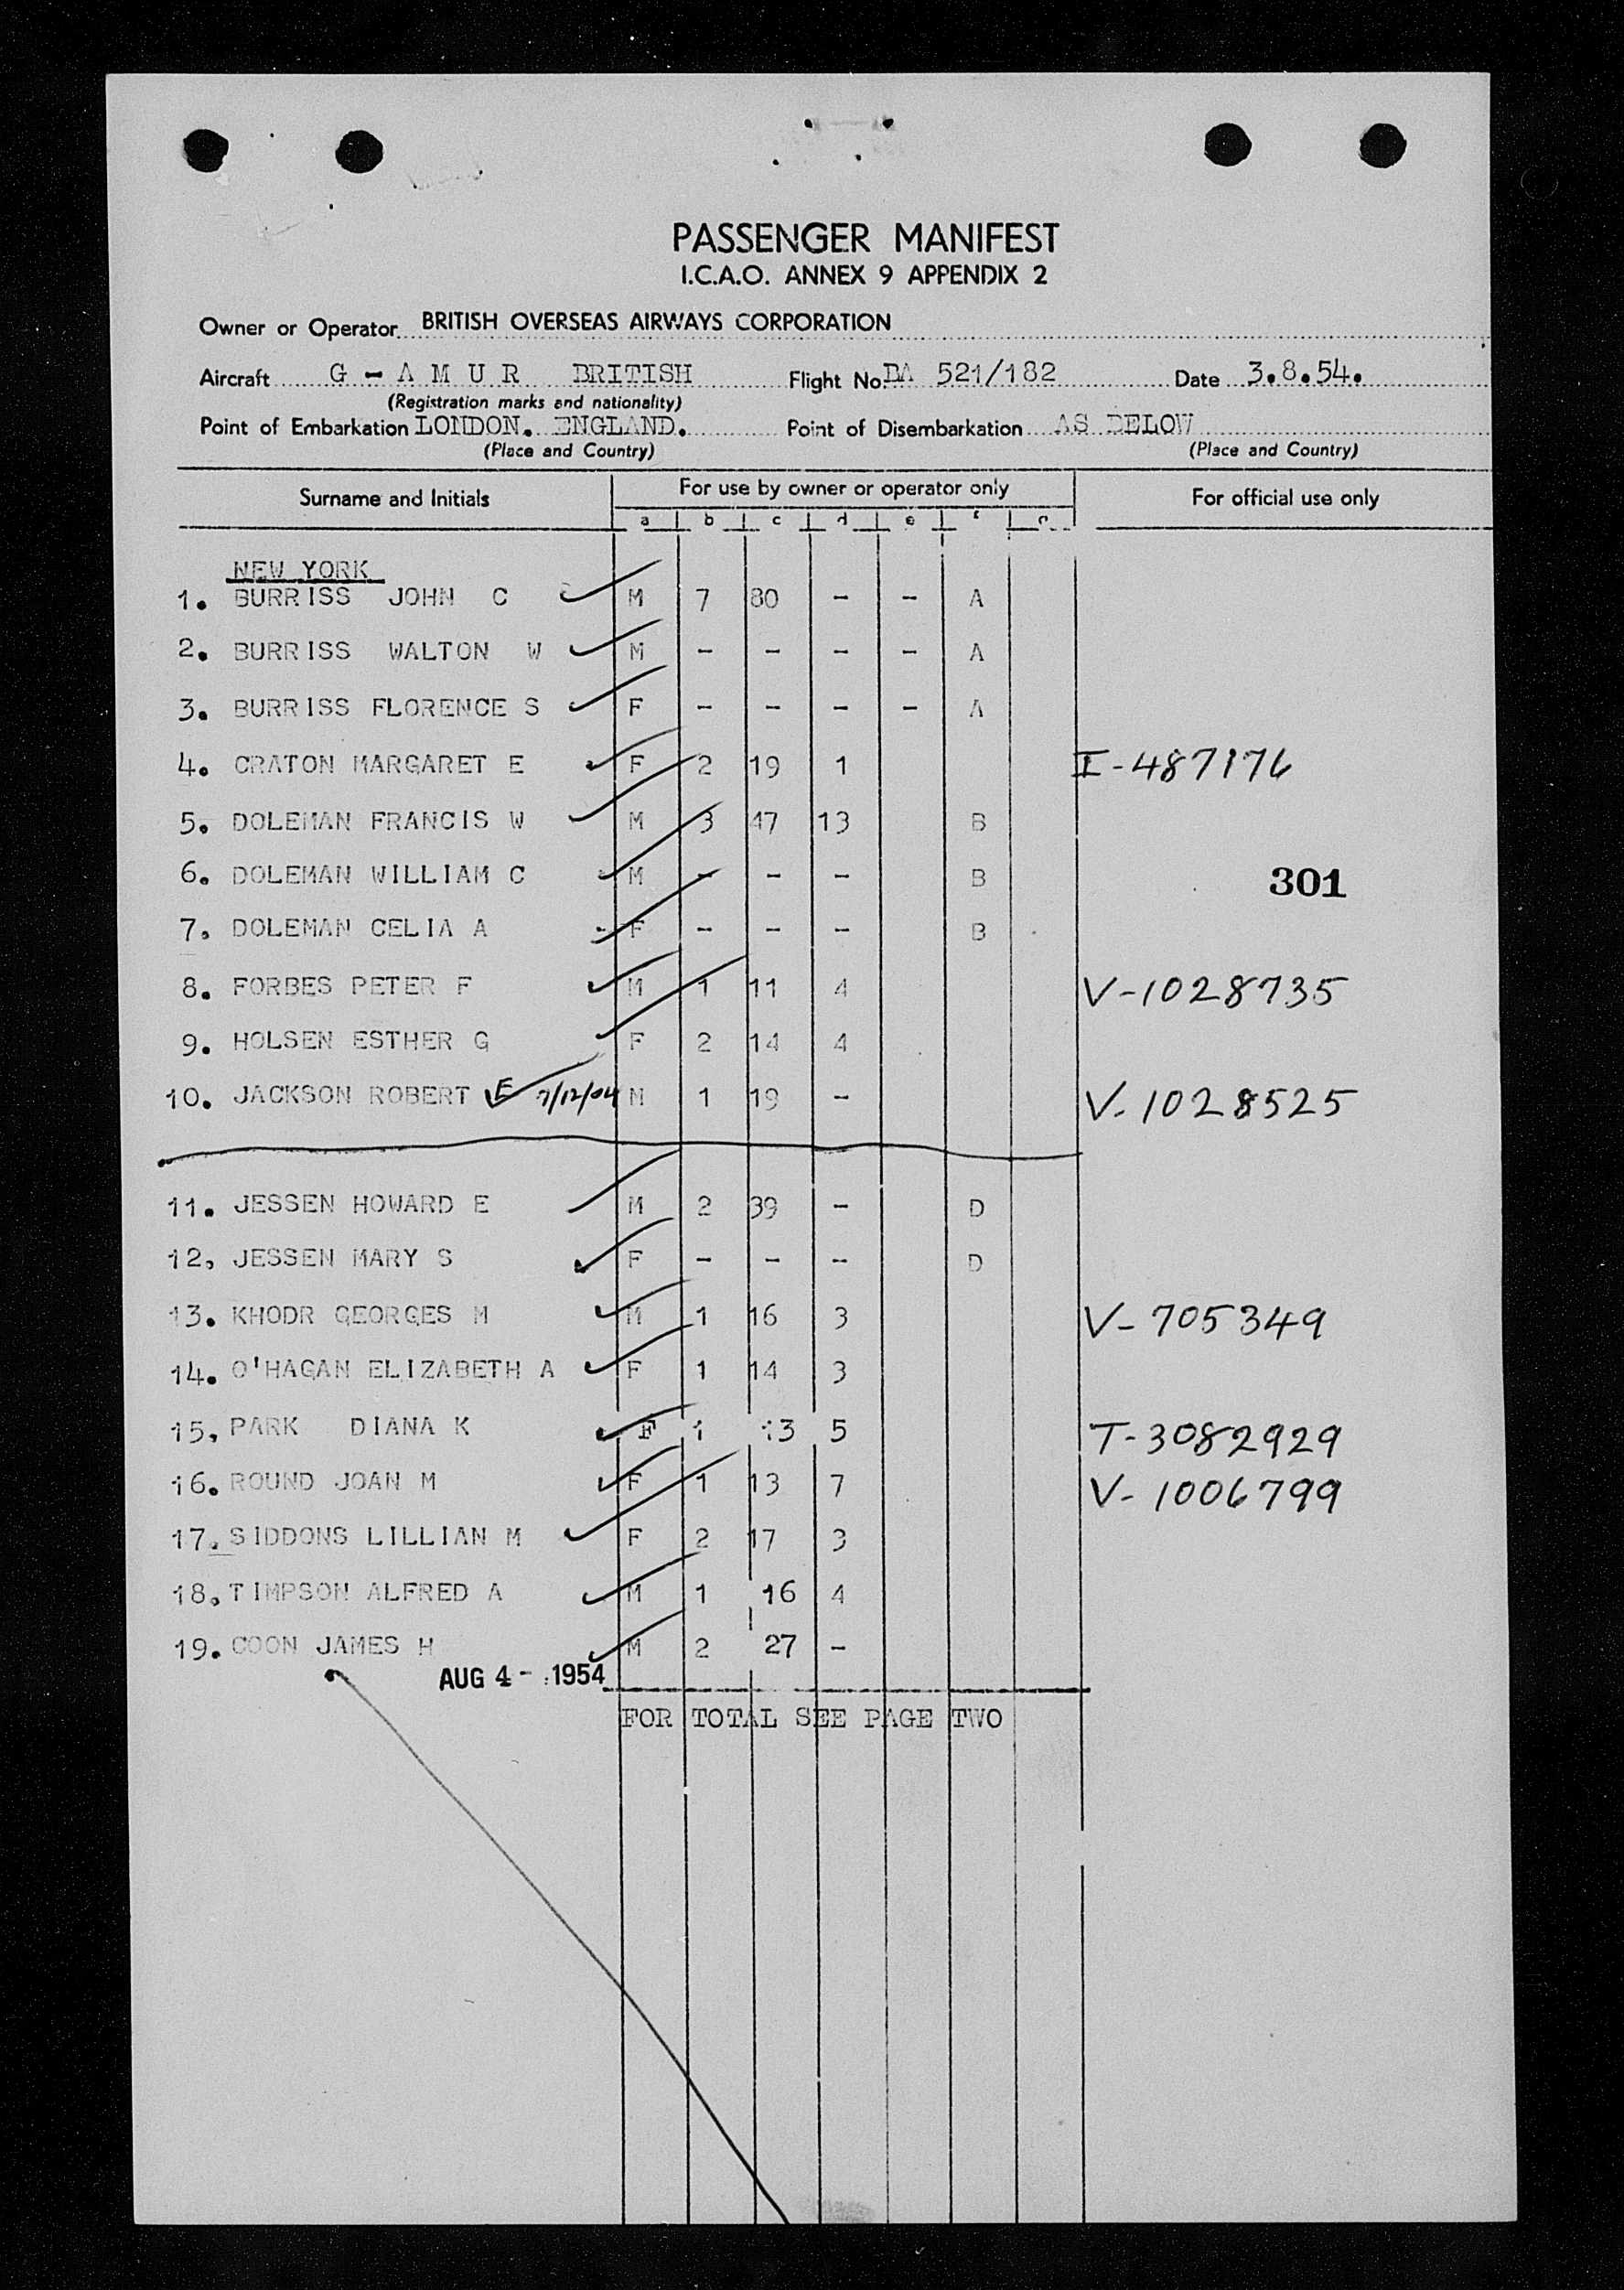 PASSENGER MANIFEST
I.C.A.O. ANNEX 9 APPENDIX 2
Owner or Operator BRITISH OVERSEAS AIRWAYS CORPORATION
Aircraft G - A M U R BRITISH Flight No. BA 521/182 Date 3.8.54.
(Registration marks and nationality)
Point of Embarkation LONDON. ENGLAND. Point of Disembarkation AS BELOW
(Place and Country) (Place and Country)
Surname and Initials For use by owner or operator only For official use only
a b c d e f
NEW YORK
1. BURRISS JOHN C M 7 80 - - A
2. BURRISS WALTON W M - - - - A
3. BURRISS FLORENCE S F - - - - A
4. CRATON MARGARET E F 2 19 1 I-487176
5. DOLEMAN FRANCIS W M 3 47 13 B
6. DOLEMAN WILLIAM C M - - - B 301
7. DOLEMAN CELIA A F - - - B
8. FORBES PETER F M 1 11 4 V-1028735
9. HOLSEN ESTHER G F 2 14 4
10. JACKSON ROBERT E 7/12/04 M 1 19 - V-1028525
11. JESSEN HOWARD E M 2 39 - D
12. JESSEN MARY S F - - - D
13. KHODR GEORGES M M 1 16 3 V-705349
14. O'HAGAN ELIZABETH A F 1 14 3
15. PARK DIANA K F 1 13 5 T-3082929
16. ROUND JOAN M F 1 13 7 V-1006799
17. SIDDONS LILLIAN M F 2 17 3
18. TIMPSON ALFRED A M 1 16 4
19. COON JAMES H M 2 27 -
AUG 4 - 1954
FOR TOTAL SEE PAGE TWO